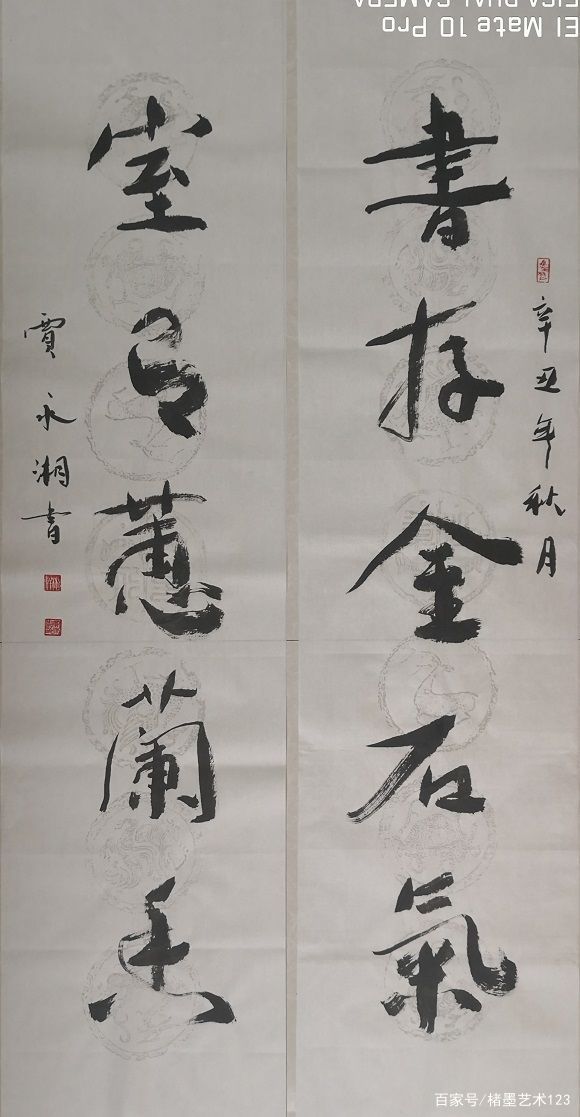 辛丑年秋月
書存金石氣
室有蕙蘭香
賈永湘書
EI Mate 10 Pro
DUAL CAMERA
百家号/楮墨艺术123